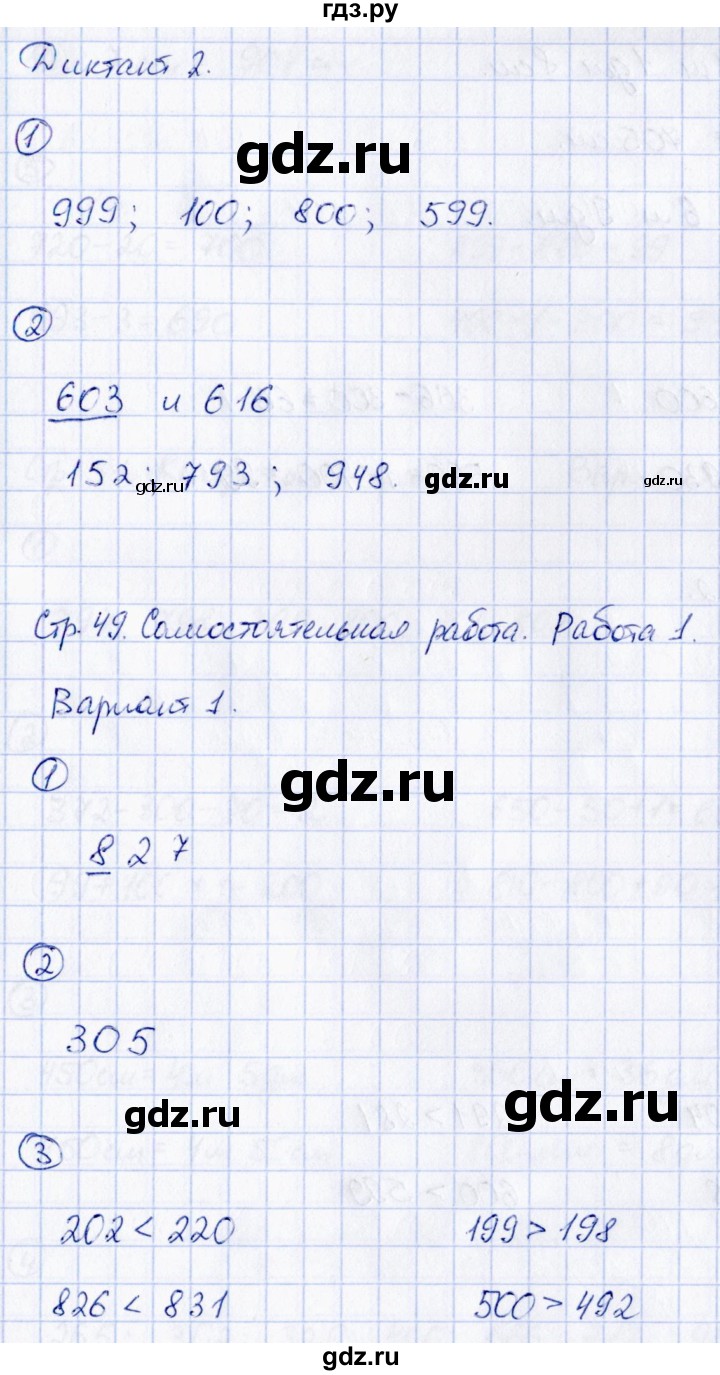 гдз.ру
Диктант 2.
1
gdz.ru
999; 100; 800; 599.
2
603 и 616
152; 793; 948.
gdz.ru gdz.ru gdz.ru
Стр. 49. Самостоятельная работа. Работа 1.
Вариант 1.
1
gdz.ru
8 2 7
2
305
gdz.ru gdz.ru
3
202 < 220 199 > 198
826 < 831 500 > 492
gdz.ru